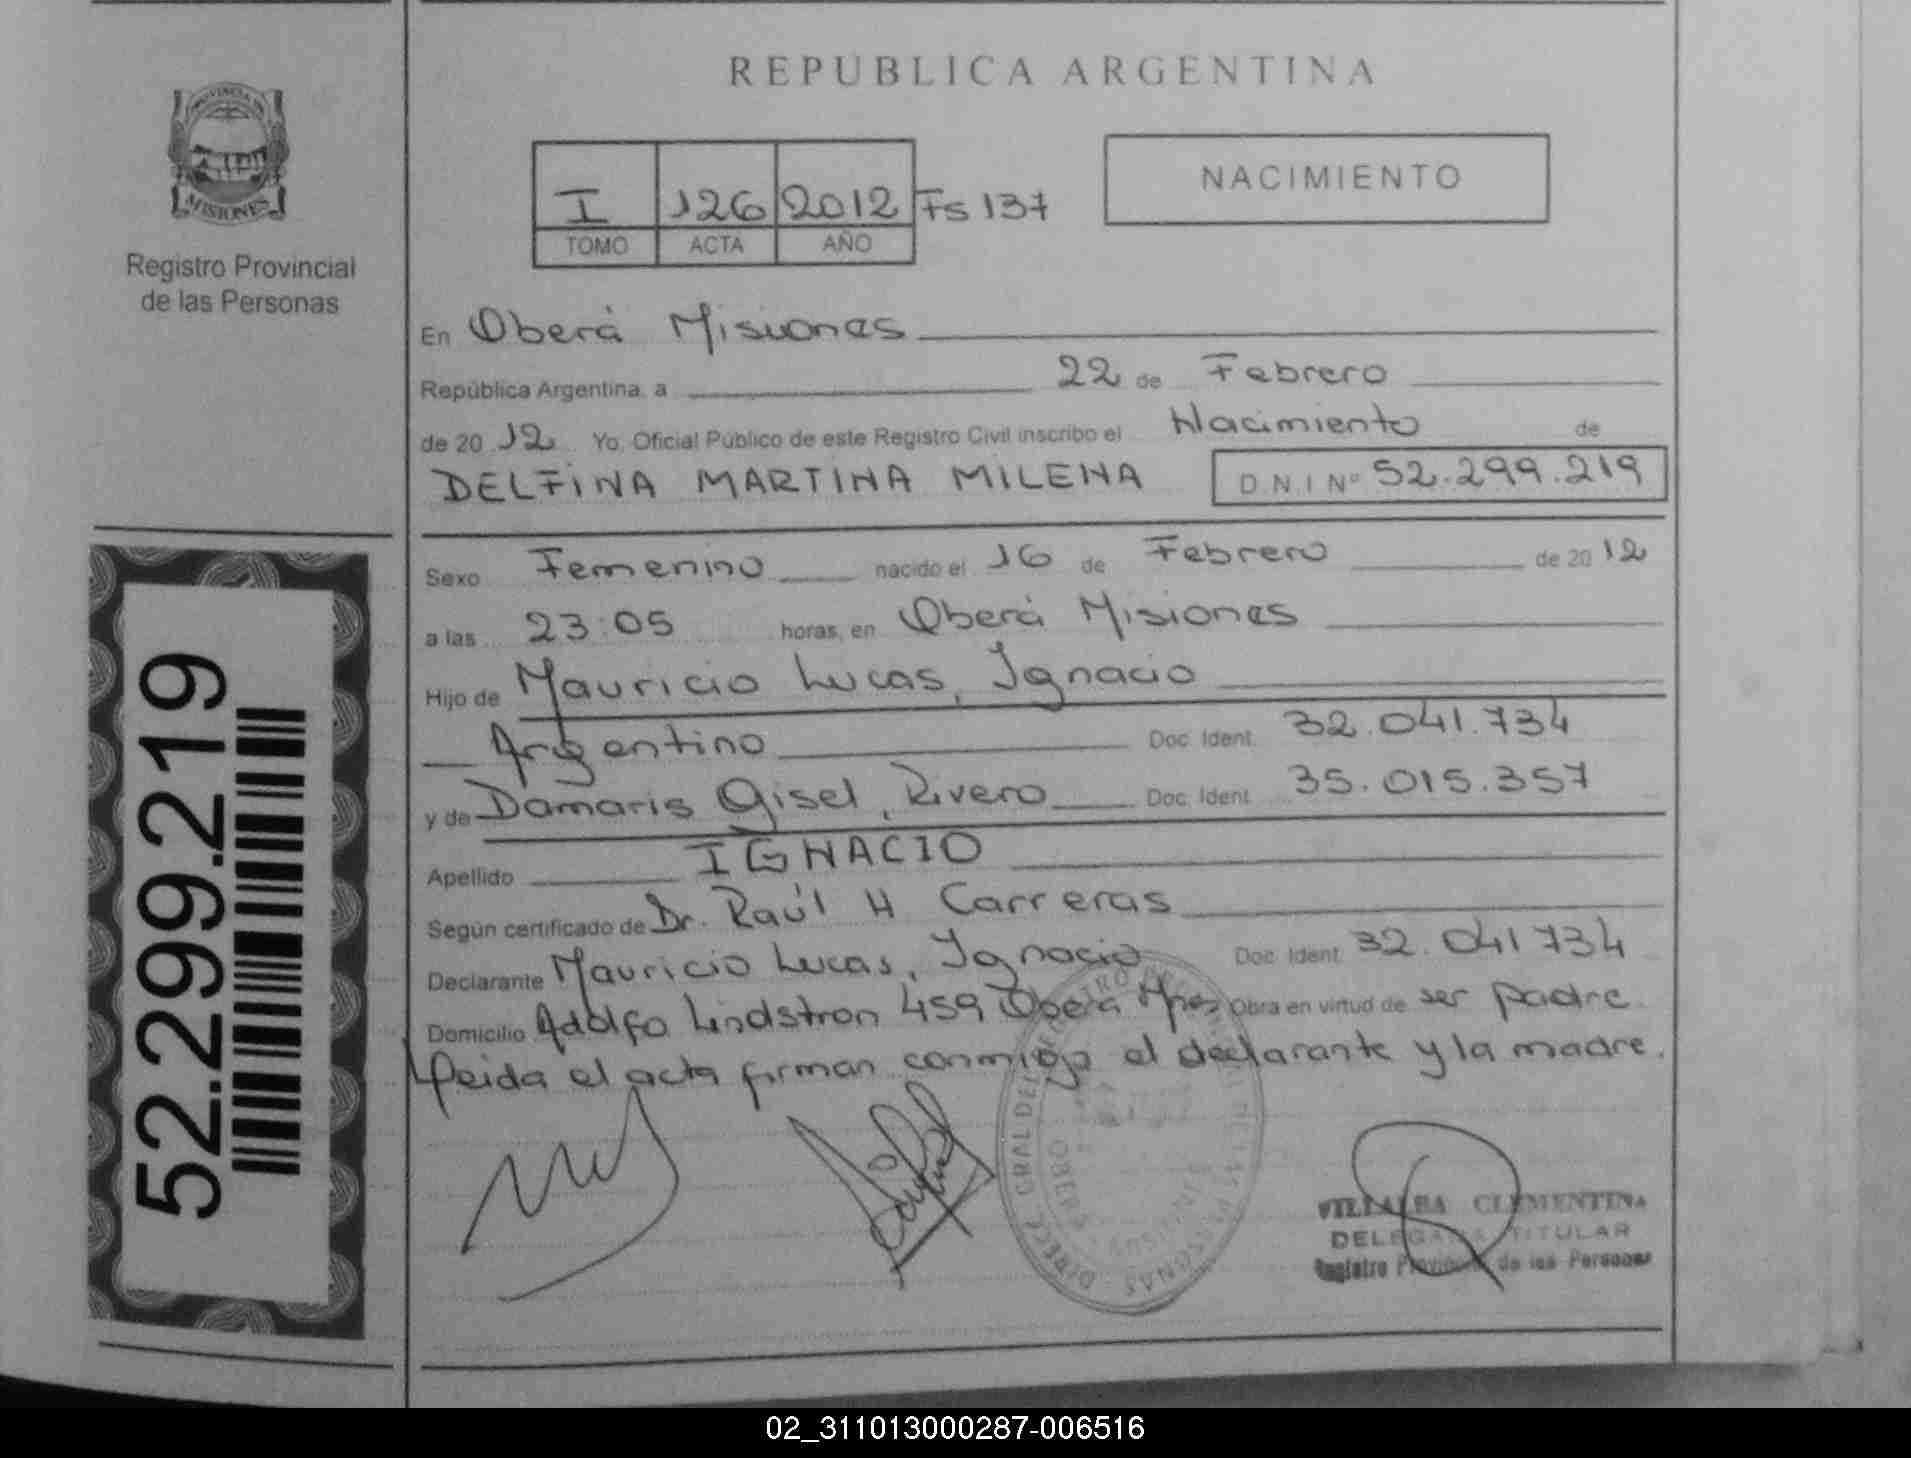 REPUBLICA ARGENTINA
PROVINCIA DE
MISIONES
Registro Provincial
de las Personas
I 126 2012 Fs 137
TOMO ACTA AÑO
NACIMIENTO
En Oberá Misiones
República Argentina, a 22 de Febrero
de 20 12 Yo, Oficial Público de este Registro Civil inscribo el Nacimiento de
DELFINA MARTINA MILENA D.N.I Nº 52.299.219
Sexo Femenino nacido el 16 de Febrero de 20 12
a las 23:05 horas, en Oberá Misiones
Hijo de Mauricio Lucas, Ignacio
Argentino Doc. Ident. 32.041.734
y de Damaris Gisel, Rivero Doc. Ident. 35.015.357
Apellido IGNACIO
Según certificado de Dr. Raúl H Carreras
Declarante Mauricio Lucas, Ignacio Doc. Ident. 32.041734
Domicilio Adolfo Lindstron 459 Oberá Mnes Obra en virtud de ser padre
Leida el acta firman conmigo el declarante y la madre.
52.299.219
VILLALBA CLEMENTINA
DELEGADA TITULAR
Registro Provincial de las Personas
02_311013000287-006516